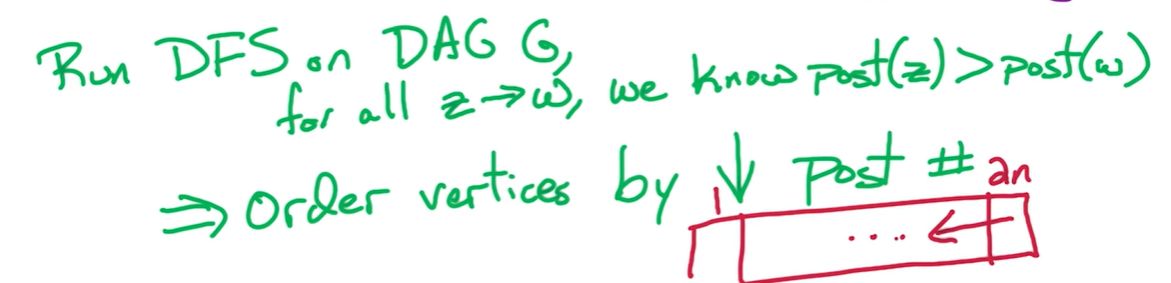 Run DFS on DAG G,
for all z → w, we know post(z) > post(w)
⇒ Order vertices by ↓ Post #
1 2n
....